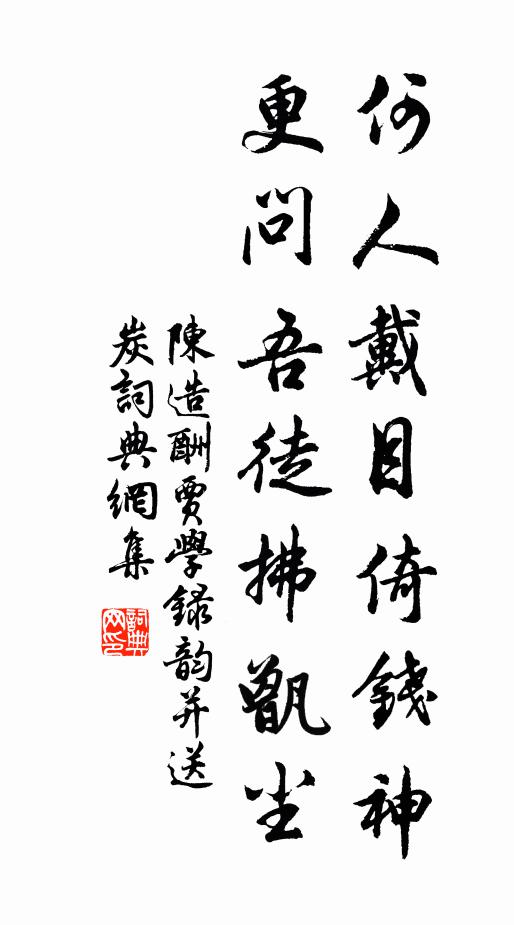 何人戴目倚錢神
更問吾徒拂甑尘
陳造酬賈學録韵并送
炭詞典網集
詞典网印